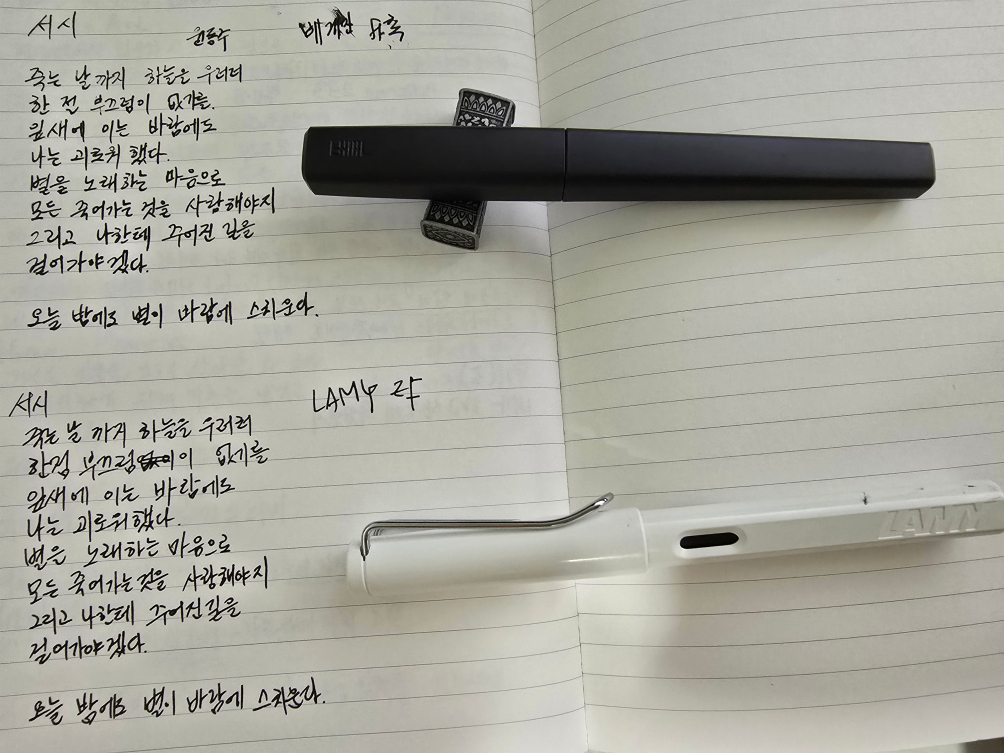 서시
윤동주
흑
죽는 날까지 하늘을 우러러
한 점 부끄럼이 없기를.
잎새에 이는 바람에도
나는 괴로워 했다.
별을 노래하는 마음으로
모든 죽어가는 것을 사랑해야지
그리고 나한테 주어진 길을
걸어가야겠다.
오늘 밤에도 별이 바람에 스치운다.
서시
LAMY
죽는 날 까지 하늘을 우러러
한점 부끄럼이 없기를
잎새에 이는 바람에도
나는 괴로워했다.
별을 노래하는 마음으로
모든 죽어가는것을 사랑해야지
그리고 나한테 주어진길을
걸어가야겠다.
오늘 밤에도 별이 바람에 스치운다.
LAMY